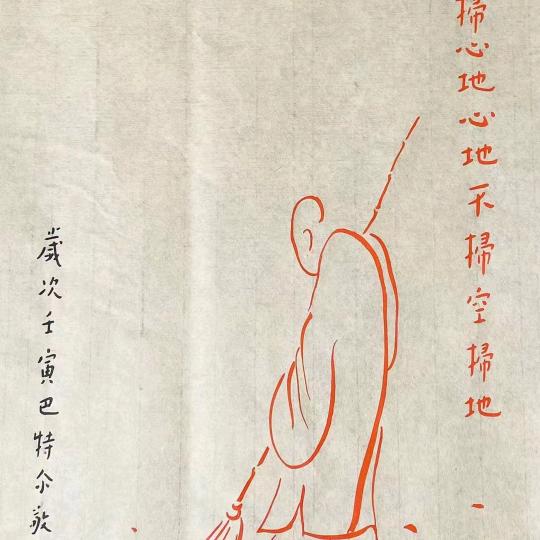 掃心地心地不掃空掃地
歲次壬寅巴特尒敬